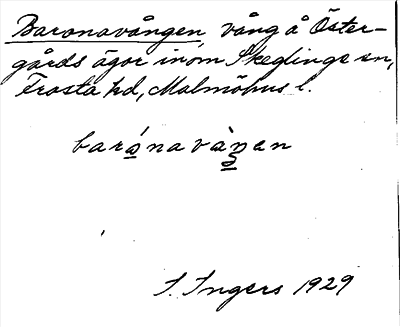 Baronavången, vång å Öster-
gårds ägor inom Skeglinge sn,
Frosta hd, Malmöhus l.
barónavàŋen
I. Ingers 1929